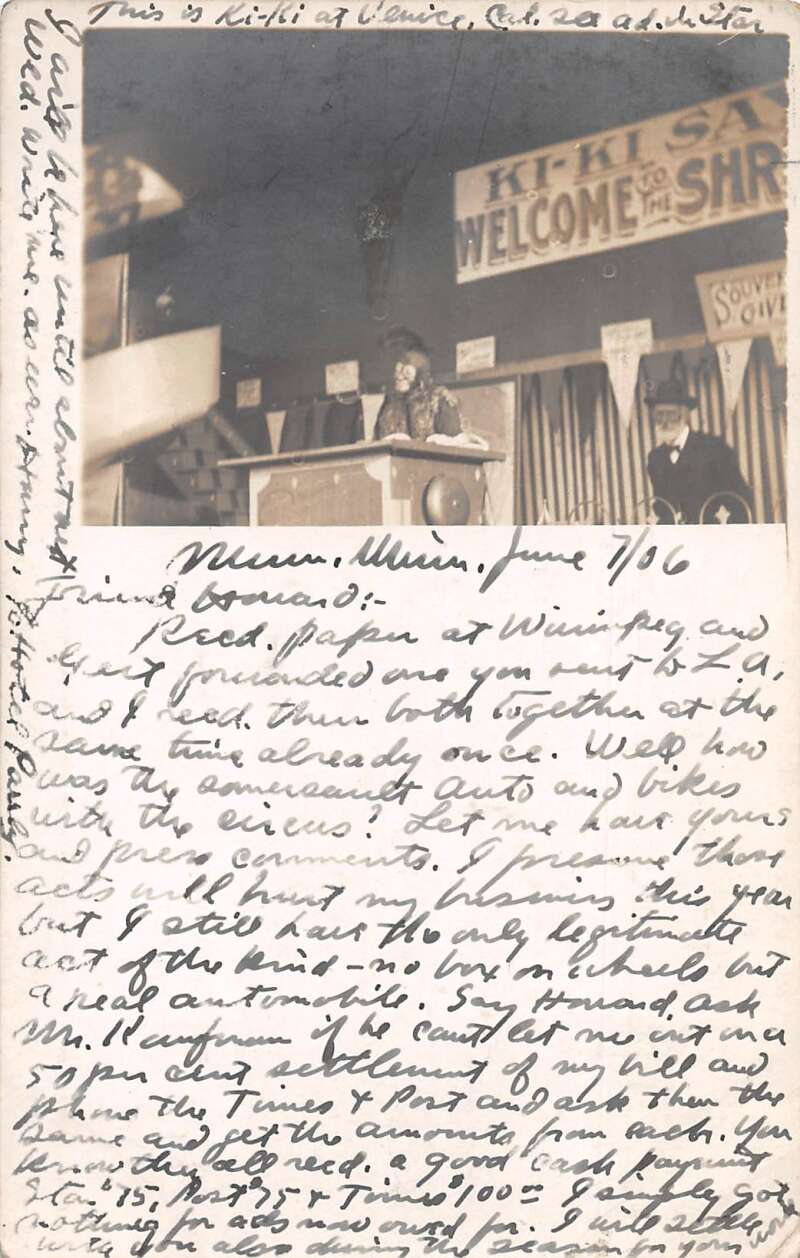 This is Ki-Ki at Venice, Cal. See ad. in Star
KI-KI SA
WELCOME TO THE SHR
SOUVEN
GIVE
Minn. Minn. June 7/06
Friend Howard:-
Recd. paper at Winnipeg and
forwarded one you sent to L.A.
and I recd. them both together at the
same time already once. Well how
was the somersault auto and bikes
with the circus? Let me have yours
and press comments. I presume those
acts will hurt my business this year
but I still have the only legitimate
act of the kind - no box on wheels but
a real automobile. Say Howard, ask
Mr. Kaufman if he can't let me out on a
50 per cent settlement of my bill and
phone the Times & Post and ask them the
same and get the amounts from each. You
know they all recd. a good cash payment
Star $75, Post $75 & Times $100 I simply got
nothing for ads now owed for. I will settle
with you also during the season for your work
I will be here until about next
Wed. Write me. as ever. Harry,
Hotel